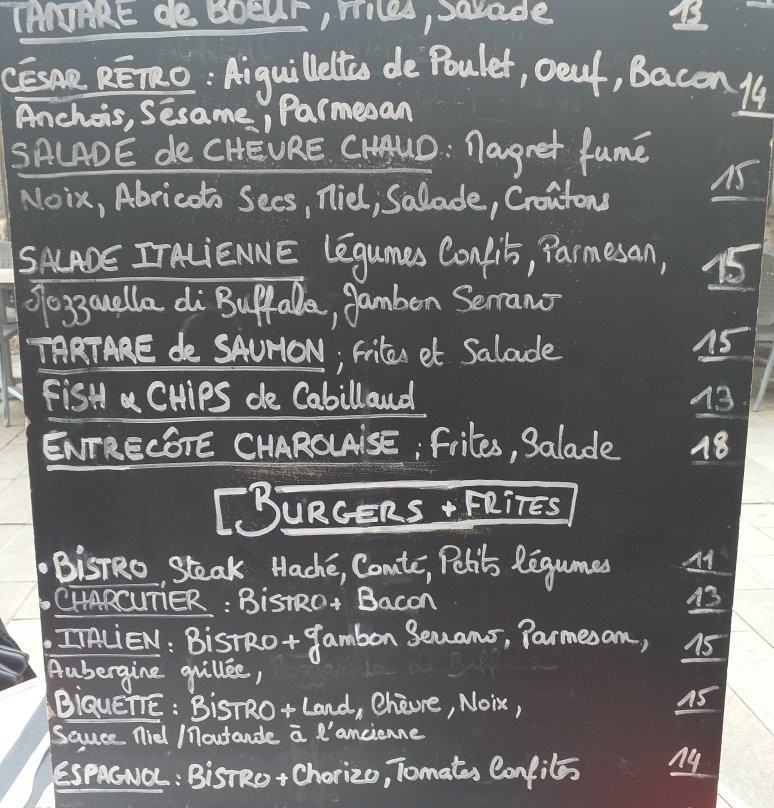 TARTARE de BOEUF, Frites, Salade 13
CÉSAR RÉTRO : Aiguillettes de Poulet, Oeuf, Bacon 14
Anchois, Sésame, Parmesan
SALADE de CHÈVRE CHAUD : Magret fumé
Noix, Abricots Secs, Miel, Salade, Croûtons 15
SALADE ITALIENNE Légumes Confits, Parmesan, 15
Mozzarella di Buffala, Jambon Serrano
TARTARE de SAUMON ; Frites et Salade 15
FISH & CHIPS de Cabillaud 13
ENTRECÔTE CHAROLAISE ; Frites, Salade 18
BURGERS + FRITES
• BISTRO Steak Haché, Comté, Petits légumes 11
• CHARCUTIER : BISTRO + Bacon 13
• ITALIEN : BISTRO + Jambon Serrano, Parmesan, 15
Aubergine grillée, Mozzarella di Buffala
BIQUETTE : BISTRO + Lard, Chèvre, Noix, 15
Sauce Miel / Moutarde à l'ancienne
ESPAGNOL : BISTRO + Chorizo, Tomates Confites 14